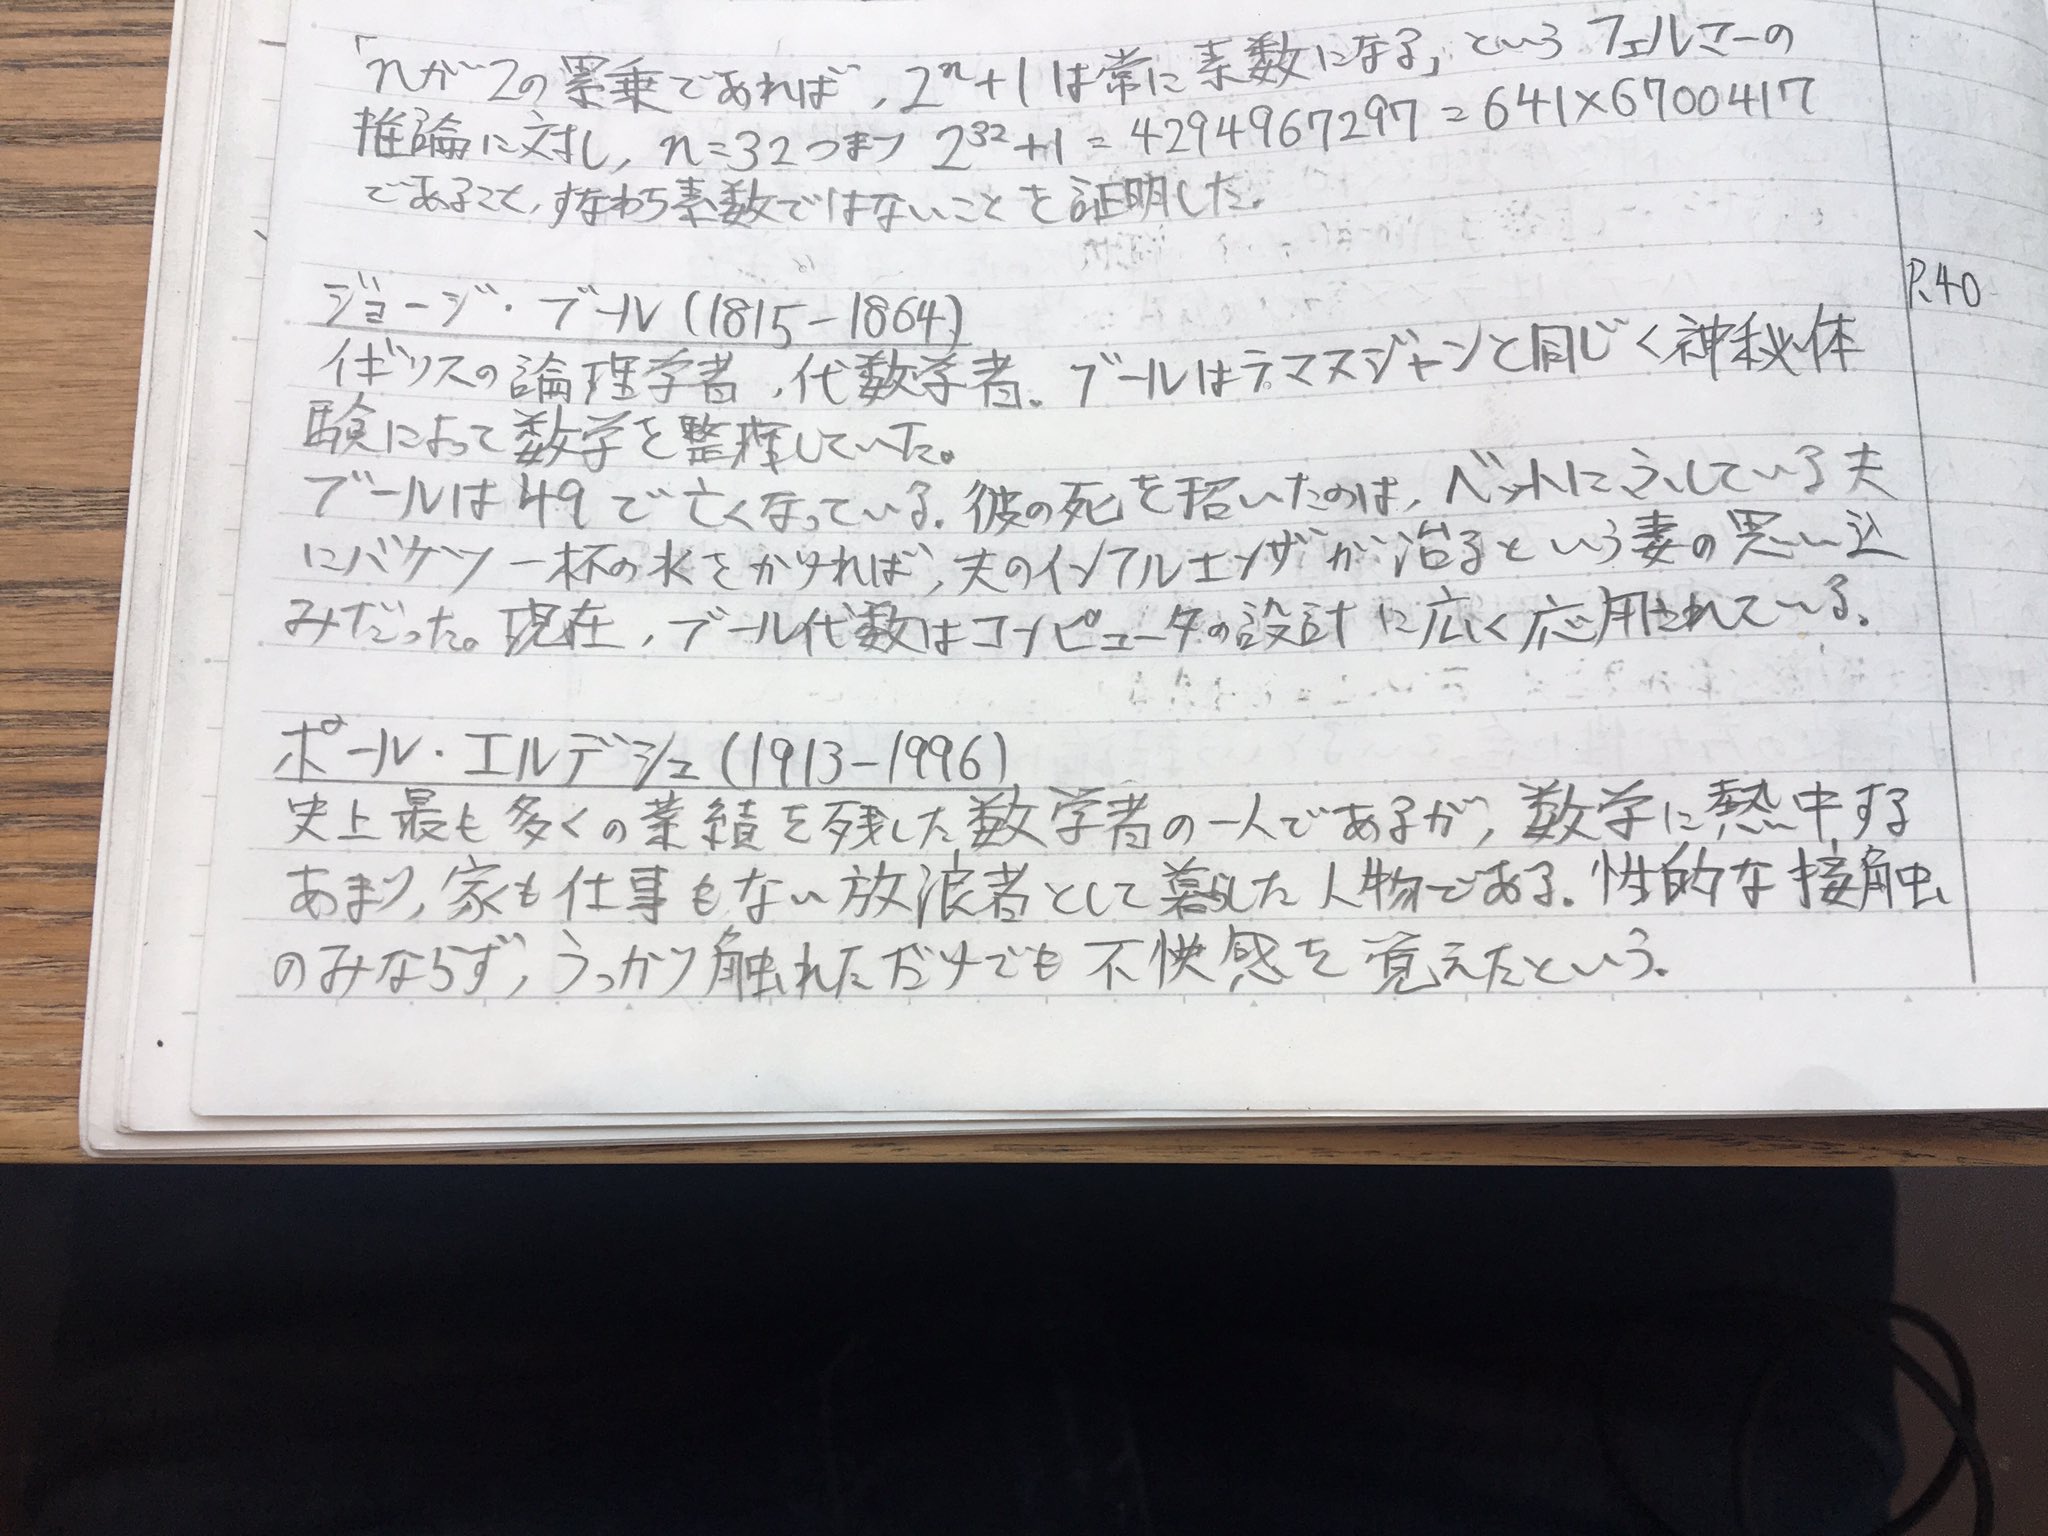 「nが2の累乗であれば、2ⁿ+1は常に素数になる」というフェルマーの
推論に対し、n=32つまり 2³²+1=4294967297=641×6700417
であること、すなわち素数ではないことを証明した。
ジョージ・ブール(1815-1864)
P.40
イギリスの論理学者、代数学者。ブールはラマヌジャンと同じく神秘体
験によって数学を整理していた。
ブールは49で亡くなっている。彼の死を招いたのは、ベットにふしている夫
にバケツ一杯の水をかければ、夫のインフルエンザが治るという妻の思い込
みだった。現在、ブール代数はコンピュータの設計に広く応用されている。
ポール・エルデシュ(1913-1996)
史上最も多くの業績を残した数学者の一人であるが、数学に熱中する
あまり、家も仕事もない放浪者として暮らした人物である。性的な接触
のみならず、うっかり触れただけでも不快感を覚えたという。